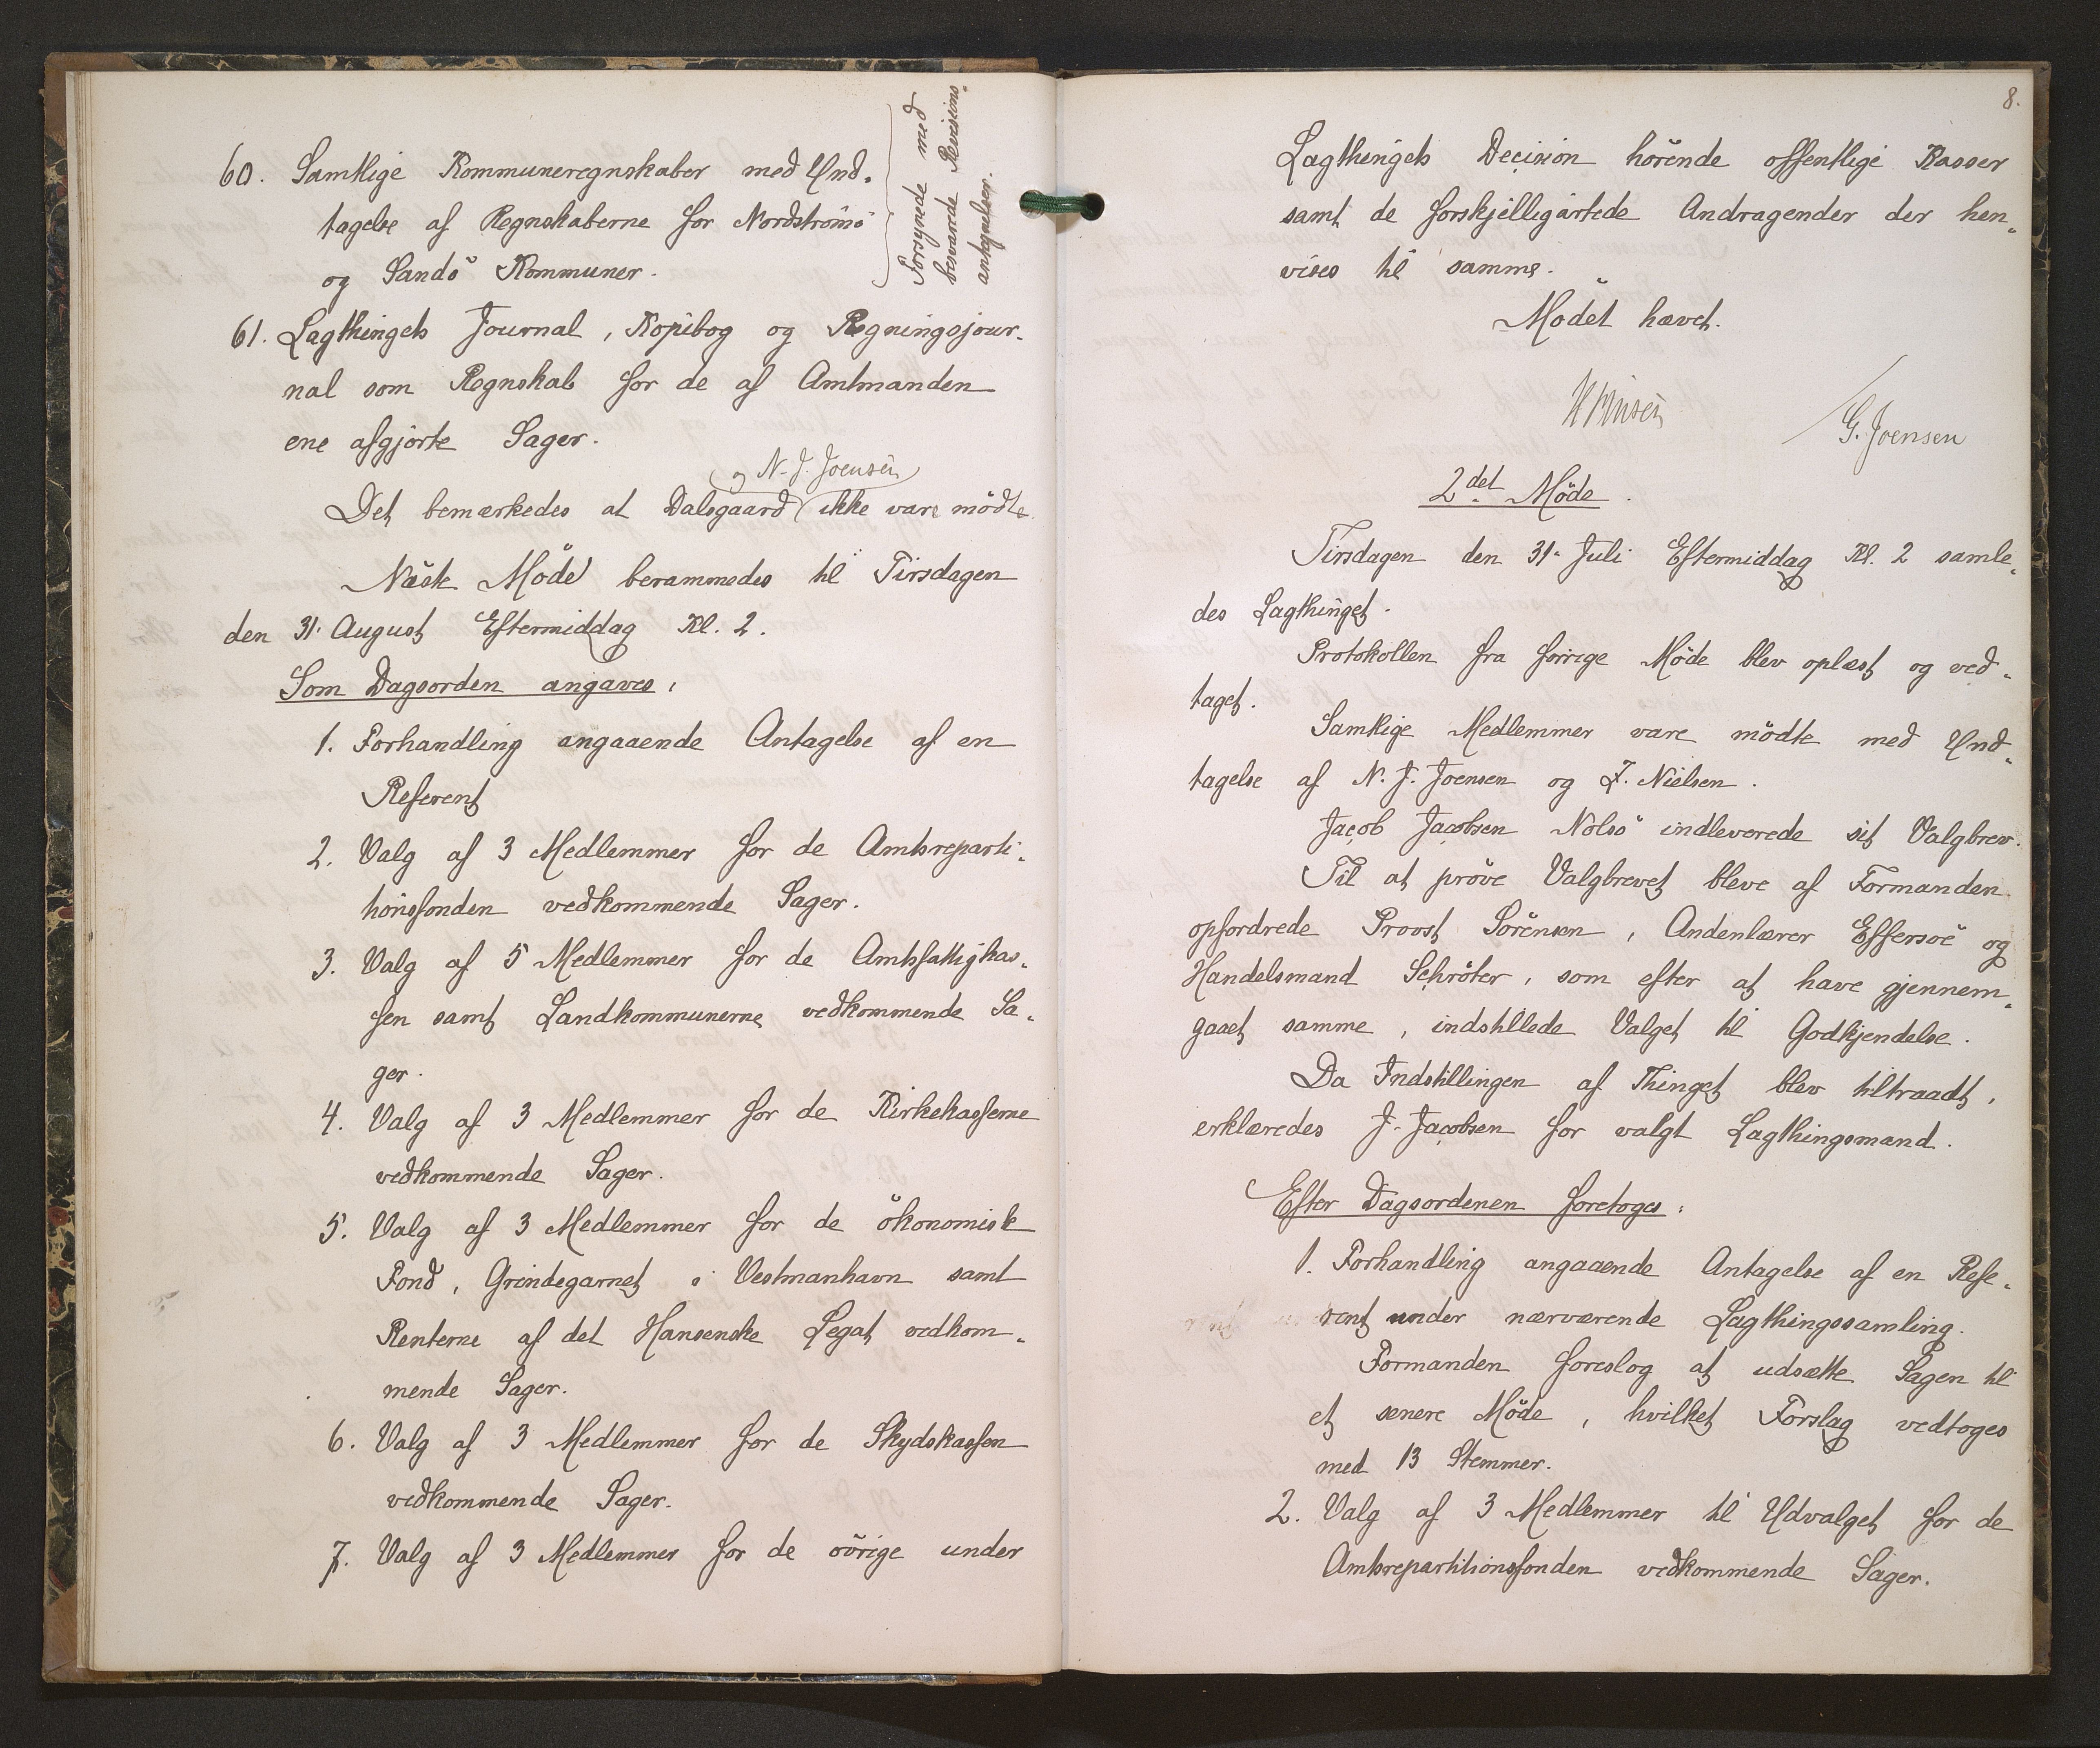 60. Samtlige Kommuneregnskaber med Und-
tagelse af Regnskaberne for Nordströmö
og Sandö Kommuner.
Forsynede med
besvarede Revisions-
antegnelser.
61. Lagthingets Journal, Kopibog og Regningsjour-
nal som Regnskab for de af Amtmanden
ene afgjorte Sager.
og N. J. Joensen
Det bemærkedes at Dalsgaard ikke vare mödte
Næste Möde berammedes til Tirsdagen
den 31. August Eftermiddag Kl. 2.
Som Dagsorden angaves,
1. Forhandling angaaende Antagelse af en
Referent
2. Valg af 3 Medlemmer for de Amtsreparti-
tionsfonden vedkommende Sager.
3. Valg af 5 Medlemmer for de Amtsfattigkas-
sen samt Landkommunerne vedkommende Sa-
ger.
4. Valg af 3 Medlemmer for de Kirkekasserne
vedkommende Sager.
5. Valg af 3 Medlemmer for de ökonomisk
Fond, Grindegarnet i Vestmanhavn samt
Renterne af det Hansenske Legat vedkom-
mende Sager.
6. Valg af 3 Medlemmer for de Skydskassen
vedkommende Sager.
7. Valg af 3 Medlemmer for de övrige under
8.
Lagthingets Decision hörende offentlige Kasser
samt de forskjelligartede Andragender der hen-
vises til samme.
Mödet hævet.
G. Joensen
2det Möde.
Tirsdagen den 31. Juli Eftermiddag Kl. 2 samle-
des Lagthinget.
Protokollen fra forrige Möde blev oplæst og ved-
taget.
Samtlige Medlemmer vare mödte med Und-
tagelse af N. J. Joensen og J. Nielsen.
Jacob Jacobsen Nolsö indleverede sit Valgbrev.
Til at pröve Valgbrevet bleve af Formanden
opfordrede Provst Sörensen, Andenlærer Effersöe og
Handelsmand Schröter, som efter at have gjennem-
gaaet samme, indstillede Valget til Godkjendelse.
Da Indstillingen af Thinget blev tiltraadt,
erklæredes J. Jacobsen for valgt Lagthingsmand.
Efter Dagsordenen foretoges:
1. Forhandling angaaende Antagelse af en Refe-
rent under nærværende Lagthingssamling.
Formanden foreslog at udsætte Sagen til
et senere Möde, hvilket Forslag vedtoges
med 13 Stemmer.
2. Valg af 3 Medlemmer til Udvalget for de
Amtsrepartitionsfonden vedkommende Sager.